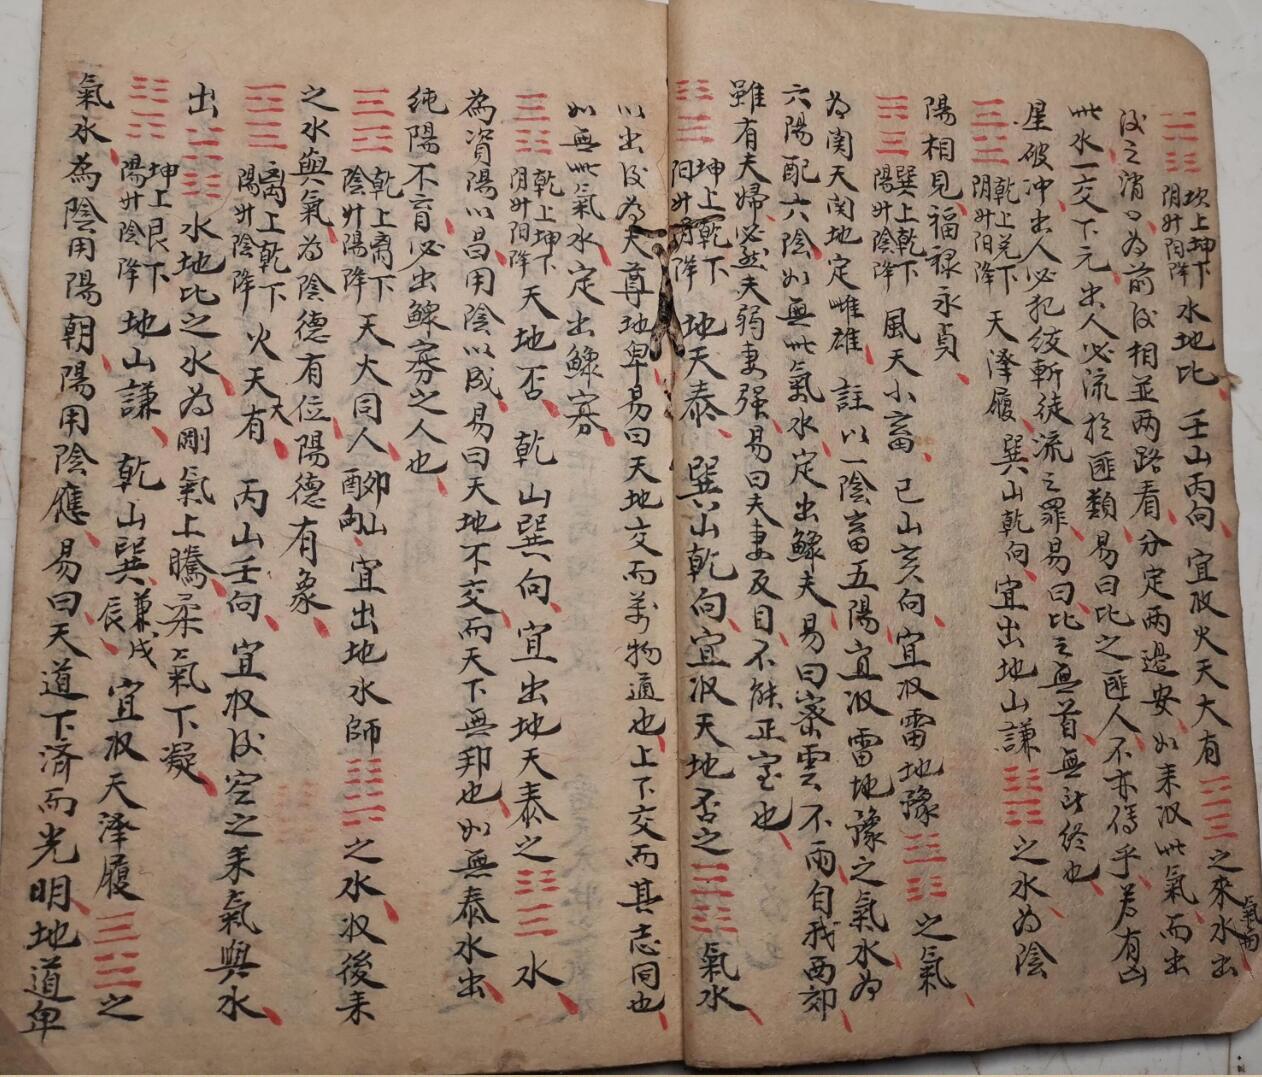 坎上坤下 阴升阳降 水地比 壬山丙向 宜収火天大有 之來水出 氣而
后之消口為前后相並两路看分定两邊安如来収此氣而出
此水一交下元出人必流於匪類易曰比之匪人不亦傷乎若有凶
星破冲出人必犯绞斬徒流之罪易曰比之無首無所終也
乾上兑下 阴升阳降 天泽履 巽山乾向宜出地山謙 之水為陰
陽相見福禄永貞
巽上乾下 陽升陰降 風天小畜 巳山亥向宜収雷地豫 之氣
為関天関地定雌雄 註以一陰畜五陽宜収雷地豫之氣水為
六陽配六陰如無此氣水定出鰥夫易曰密雲不雨自我西郊
雖有夫婦必然夫弱妻强易曰夫妻反目不能正室也
坤上乾下 阳升阴降 地天泰 巽山乾向宜収天地否之 氣水
以出后為天尊地卑易曰天地交而萬物通也上下交而其志同也
如無此氣水定出鰥寡
乾上坤下 阴升阳降 天地否 乾山巽向宜出地天泰之 水
為資陽以昌用陰以成易曰天地不交而天下無邦也如無泰水出
純陽不育必出鰥寡之人也
乾上离下 陰升陽降 天火同人 卯山酉向 宜出地水師 之水収後来
之水與氣為陰德有位陽德有象
离上乾下 陽升陰降 火天大有 丙山壬向 宜収后空之来氣與水
出 水地比之水為剛氣上騰柔氣下凝
坤上艮下 陽升陰降 地山謙 乾山巽兼戌辰 宜収天泽履 之
氣水為陰用陽朝陽用陰應易曰天道下済而光明地道卑